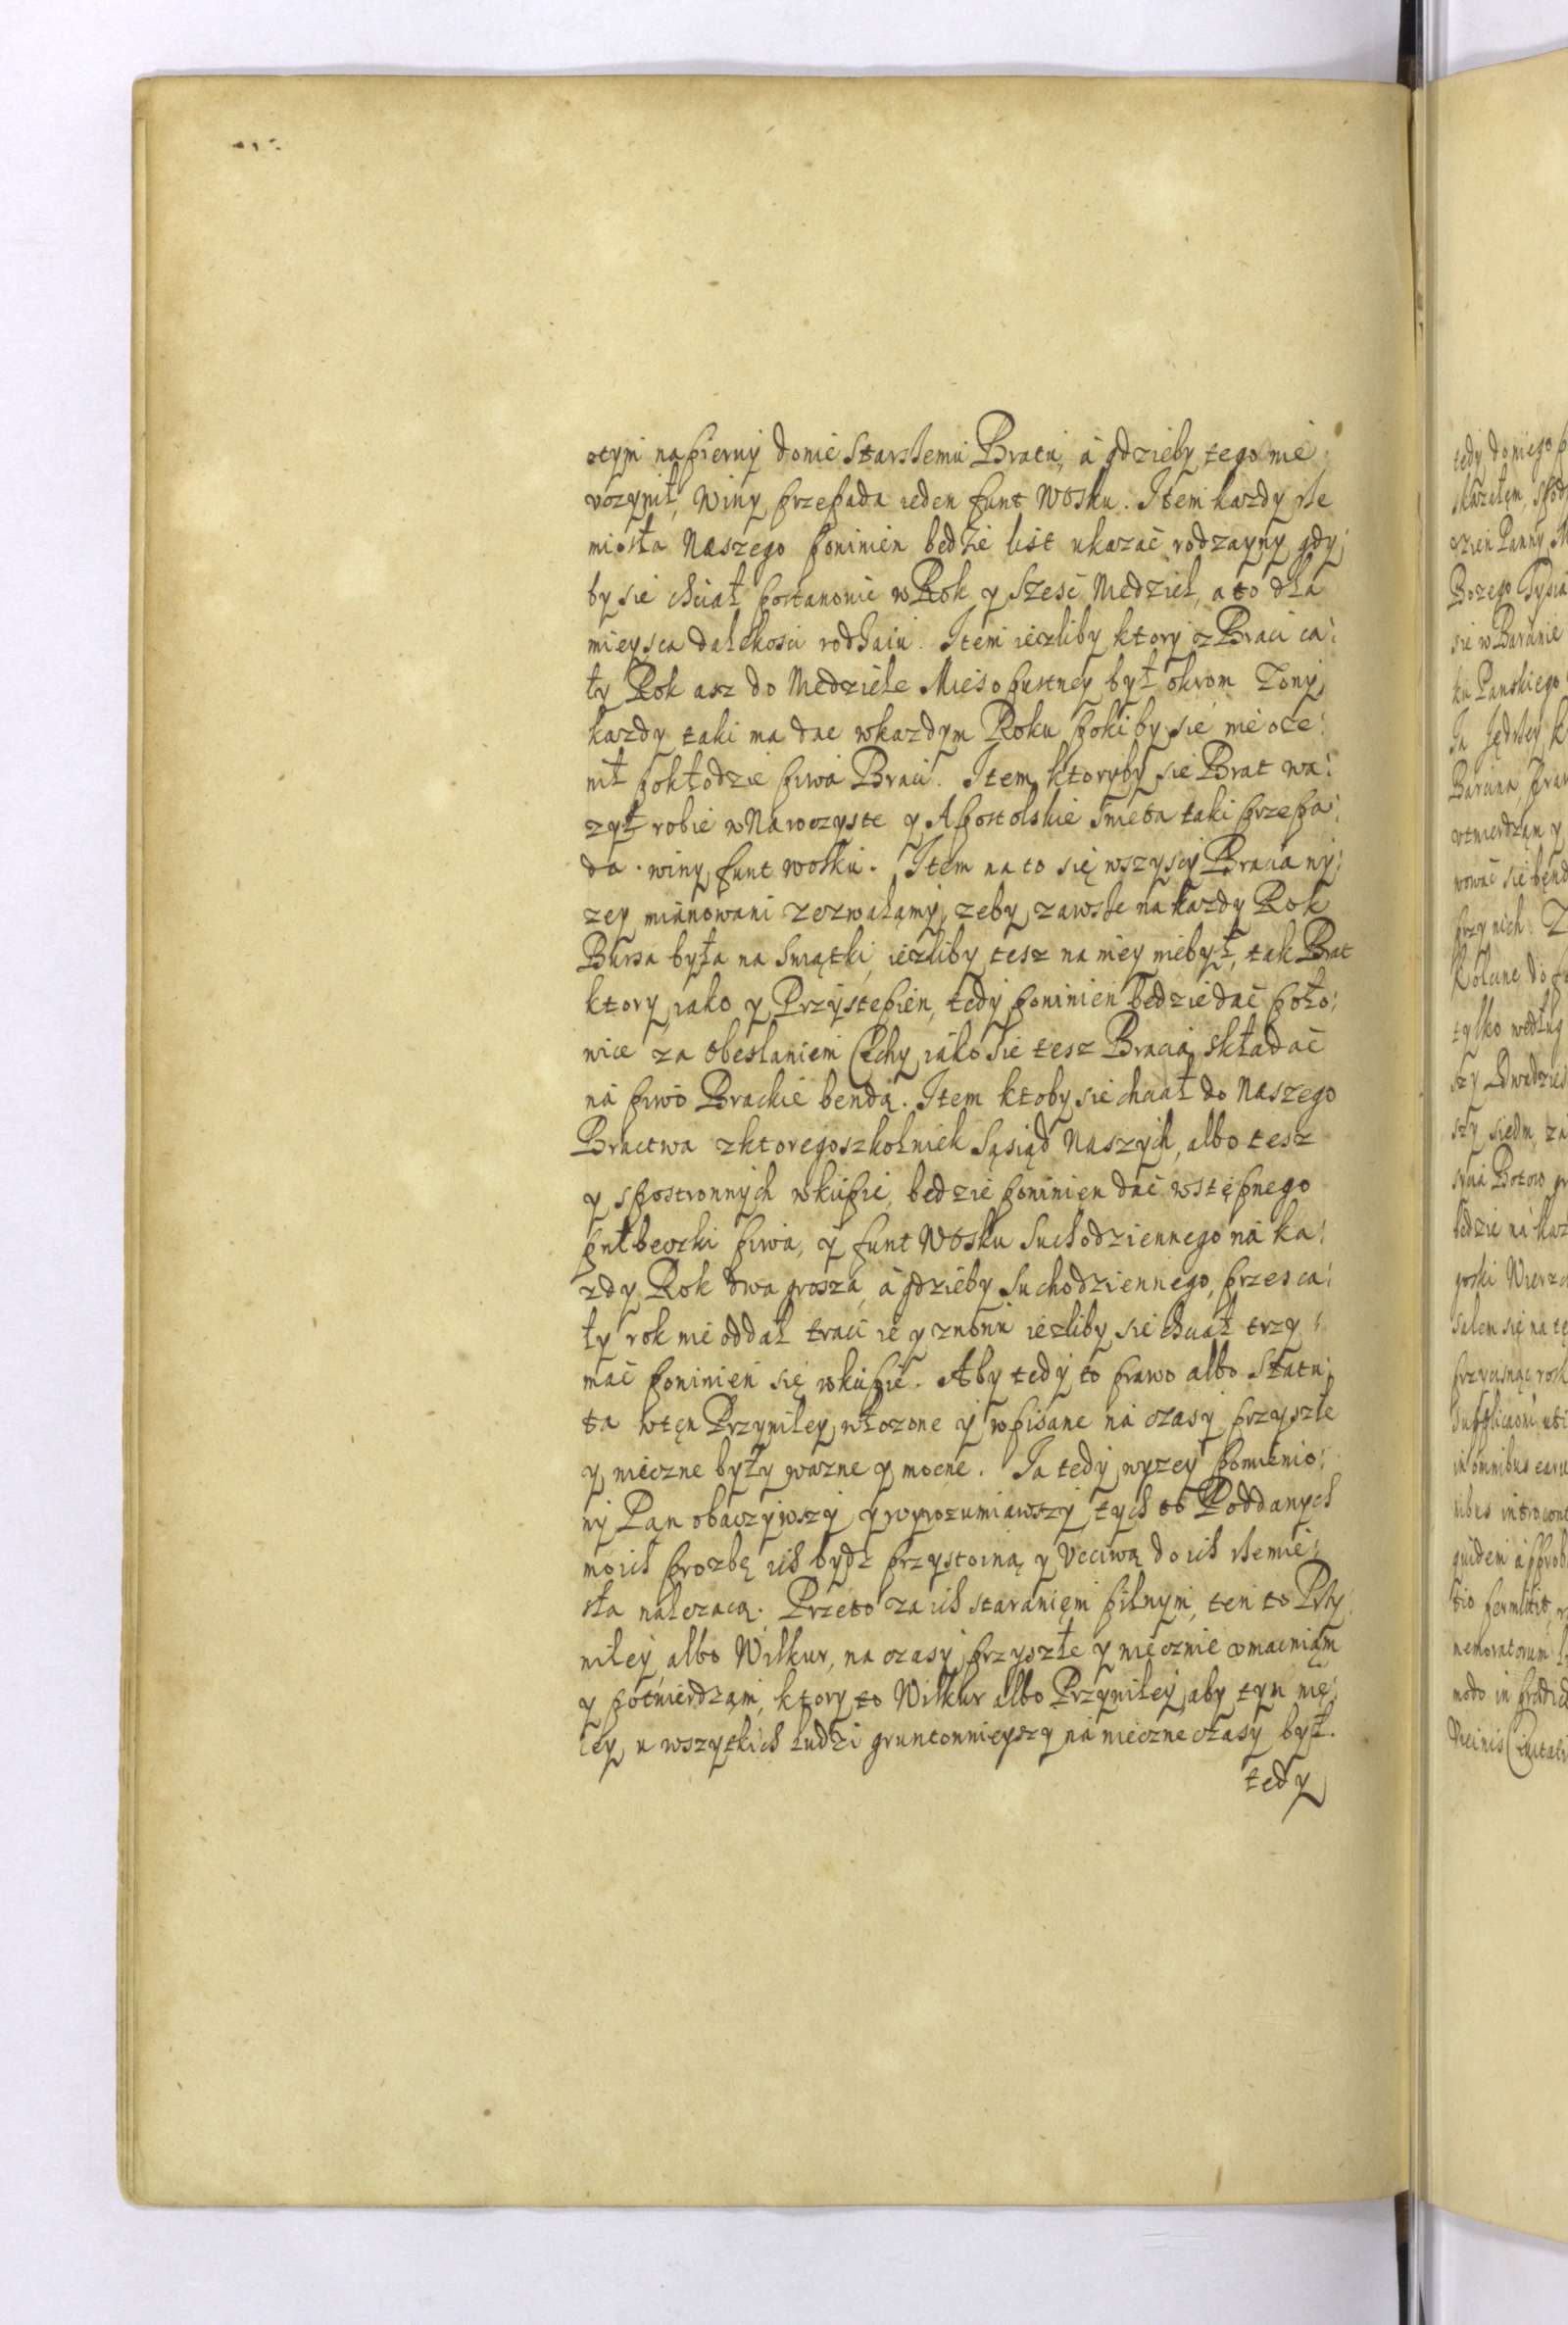 otym napierwy donie Starszemu Bratu, a gdzieby tego nie
vczynił, Winy przepada ieden funt Wosku. Item kazdy rze
miosła Naszego powinien będzie list ukazać rodzayny gdy
by sie chciał postanowic w Rok y Szesc Niedziel, a to dla
mieysca dalekosci rodzaiu. Item iezliby ktory z Braci ca:
ły Rok asz do Niedziele Miesopustney był okrom Zony,
kazdy taki ma dac w kazdym Roku poki by sie nie oze:
nił pokłodzie piwa Braci. Item ktoryby sie Brat wa:
zył robie w Nawozyste y Apostolskie Swieta taki przepa:
da winy funt wosku. Item na to się wszyscy Bracia ny:
zey mianowani zezwalamy, zeby zawsze na kazdy Rok
Bursa była na Swiątki, iezliby tesz na niey niebył, tak Brat
ktory, iako y Przystepien, tedy powinien bedzie dać poło:
nice za obesłaniem Cechy iako sie tesz Bracia składać
na piwo Brackie bendą. Item ktoby sie chciał do Naszego
Bractwa z ktoregoszkolwiek Sąsiad Naszych, albo tesz
y spostronnych wkupić, bedzie powinien dać wstępnego
puł beczki piwa, y funt Wosku Suchodziennego na ka:
zdy Rok dwa grosza, a gdzieby Suchodziennego, przes ca:
ły rok nie oddał traci ie y znowu iezliby sie chciał trzy:
mać powinien się wkupić. Aby tedy to prawo albo Statu:
ta wten Przywiley włozone y wpisane na czasy przyszłe
y wieczne były wazne y mocne. Ia tedy wyzey pomienio:
ny Pan obaczywszy y wyrozumiawszy tych to Poddanych
moich prozbę ich bydz przystoiną y Vcciwą do ich rzemie:
sła nalezacą. Przeto za ich staraniem pilnym, ten to Przy
wiley albo Wilkur, na czasy przyszłe y wiecznie vmacniam
y potwierdzam, ktory to Wilkur albo Przywiley, aby tym wię:
cey u wszytkich ludzi gruntownieyszy na wieczne czasy był.
tedy